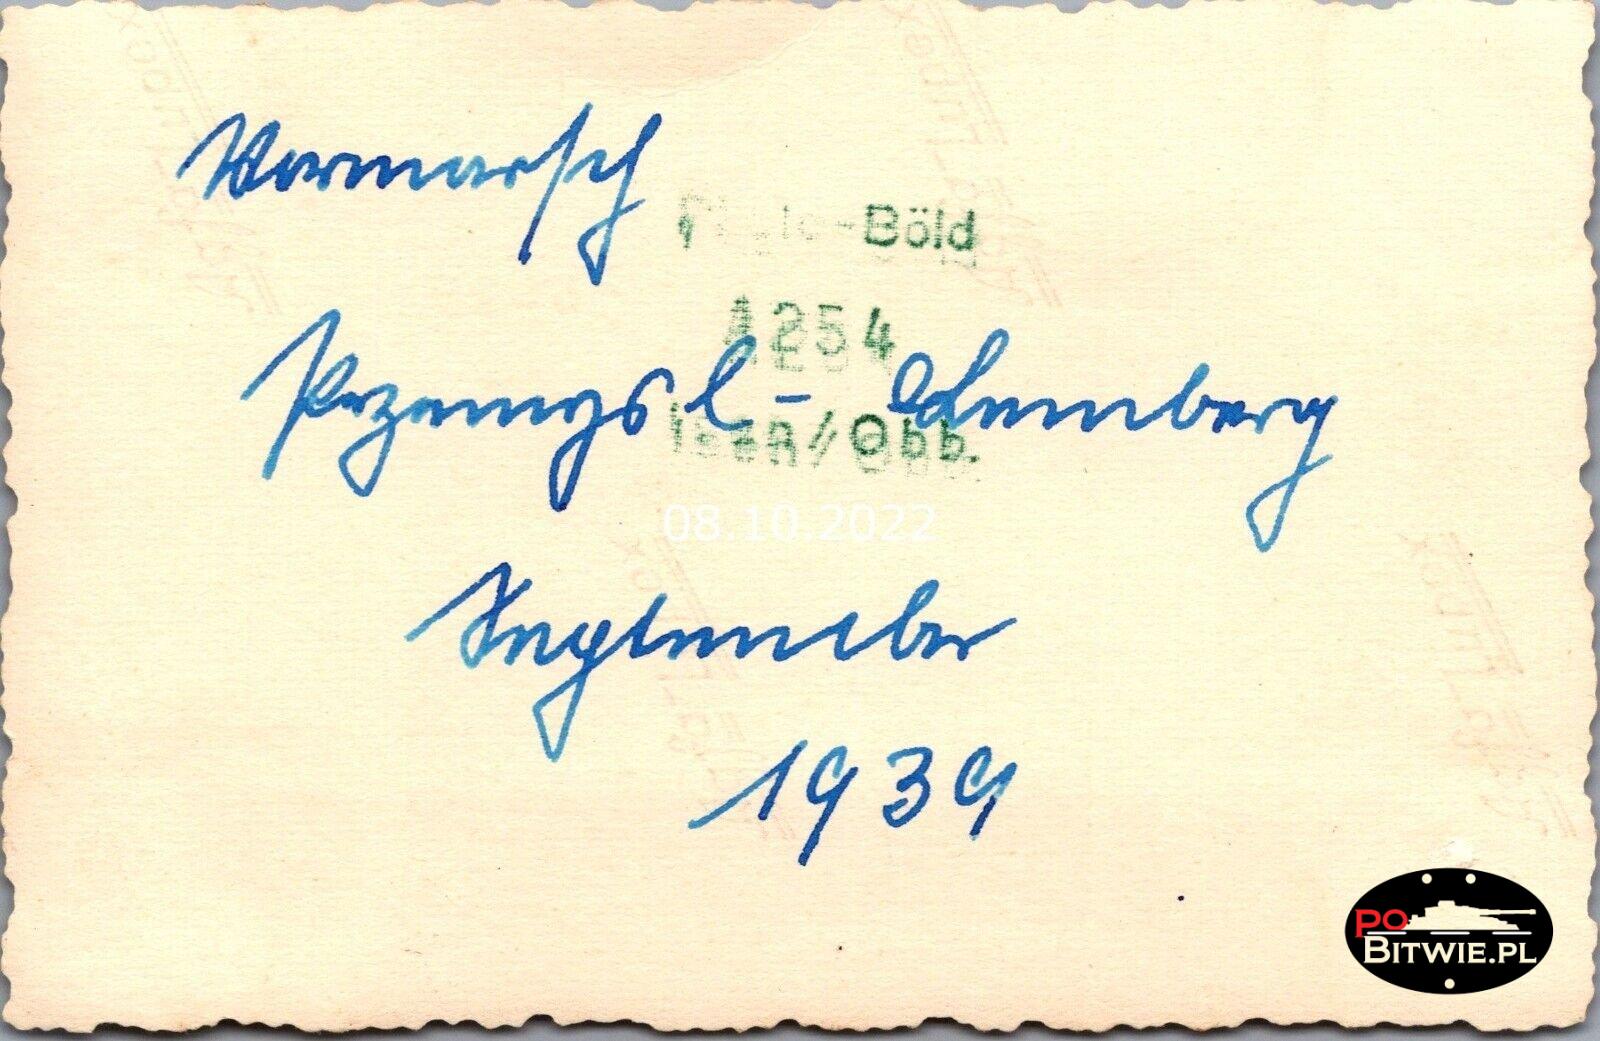 Vormarsch
Photo-Böld
1254
Przemysl - Lemberg
/Obb.
08.10.2022
September
1939
PO
BITWIE.PL